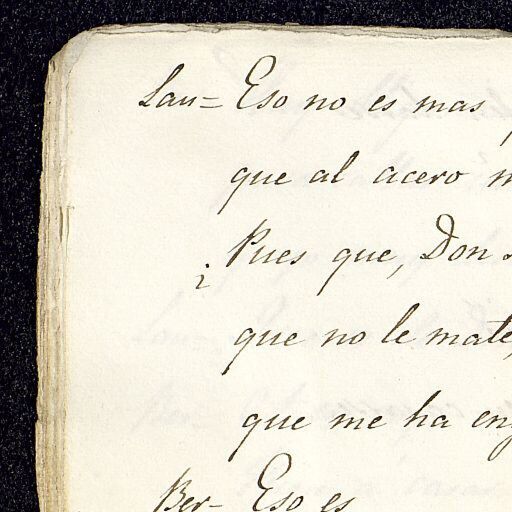 Lau= Eso no es mas
que al acero
¿Pues que, Don
que no le mate,
que me ha en
Ber- Eso es